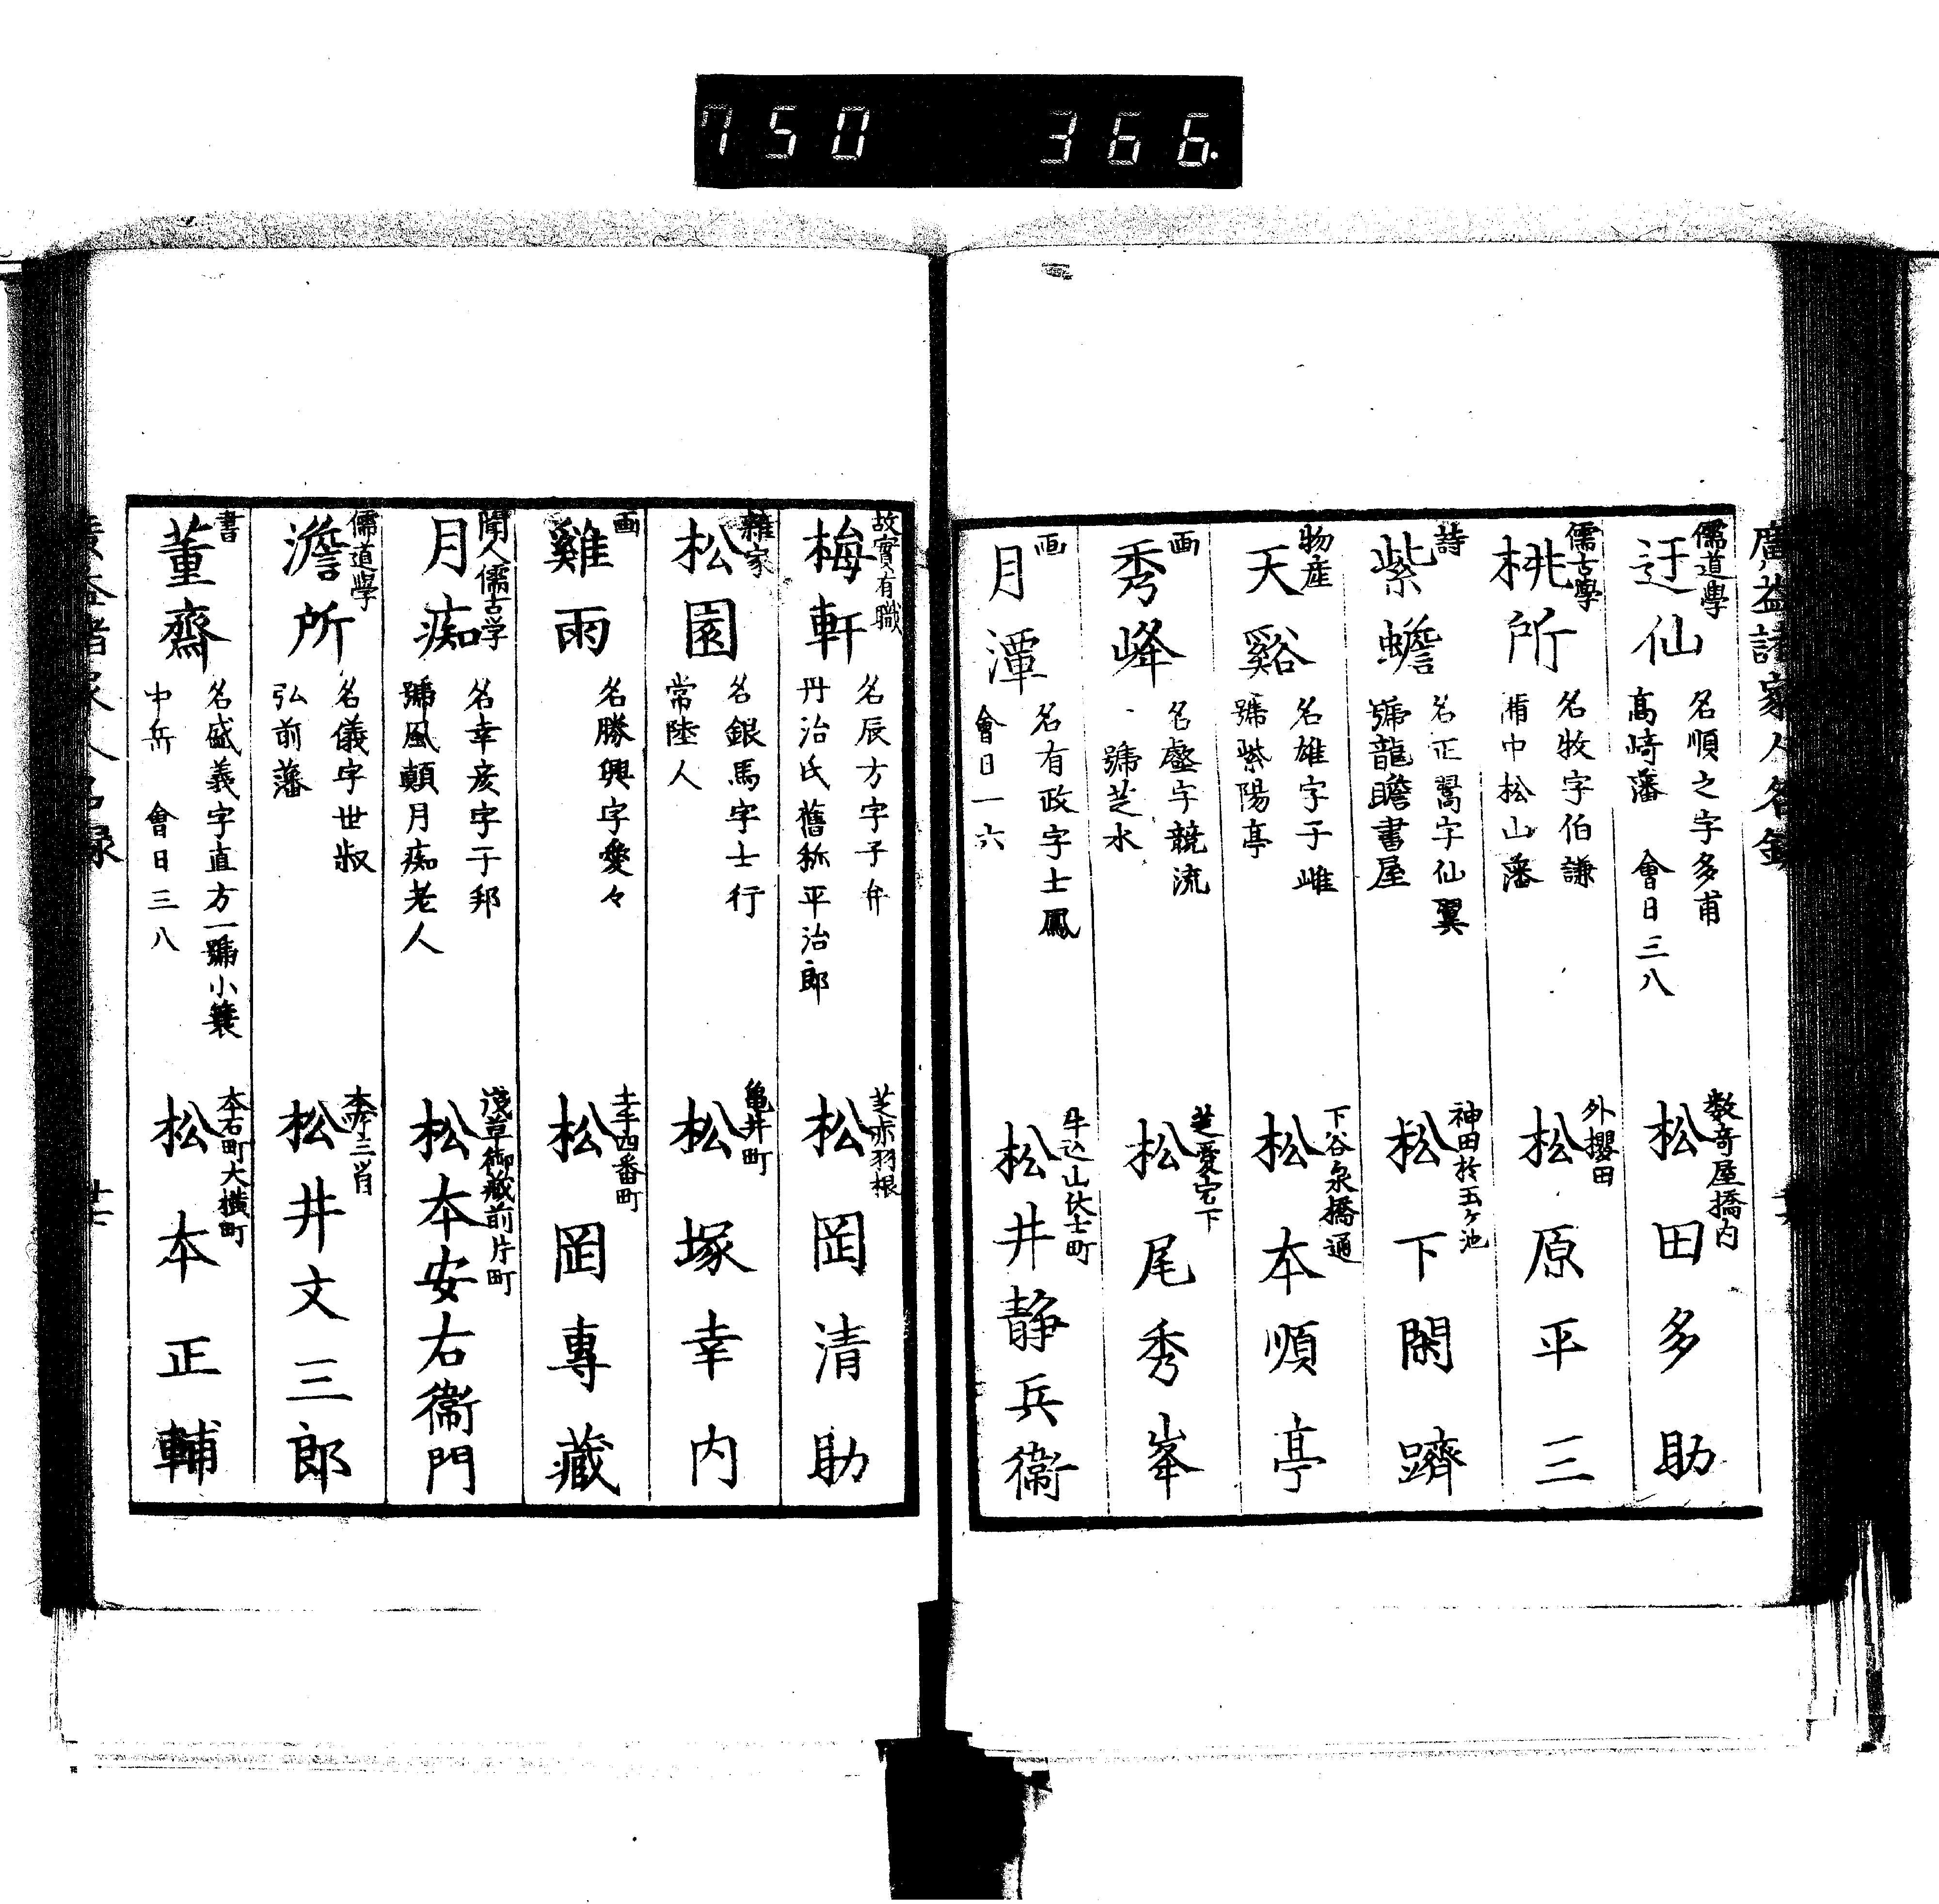 750 366.
廣益諸家人名録
儒道學
迂仙
名順之字多甫
高崎藩 會日三八
数寄屋橋内
松田多助
儒古學
桃所
名牧字伯謙
備中松山藩
外櫻田
松原平三
詩
紫蟾
名正翯字仙翼
號龍瞻書屋
神田於玉ケ池
松下閑躋
物産
天谿
名雄字于雌
號紫陽亭
下谷泉橋通
松本順亭
画
秀峰
名盤字競流
號芝水
芝愛宕下
松尾秀峯
画
月潭
名有政字士鳳
會日一六
牛込山伏士町
松井静兵衞
故實有職
梅軒
名辰方字子弁
丹治氏舊称平治郎
芝赤羽根
松岡清助
雜家
松園
名銀馬字士行
常陸人
亀井町
松塚幸内
画
雞雨
名勝興字愛々
土手四番町
松岡專藏
聞人儒古学
月痴
名幸彦字子邦
號風顛月痴老人
淺草御藏前片町
松本安右衞門
儒道學
澹所
名儀字世叔
弘前藩
本所三ツ目
松井文三郎
書
董齋
名盛義字直方一號小簑
中兵 會日三八
本石町大横町
松本正輔
廣益諸家人名録